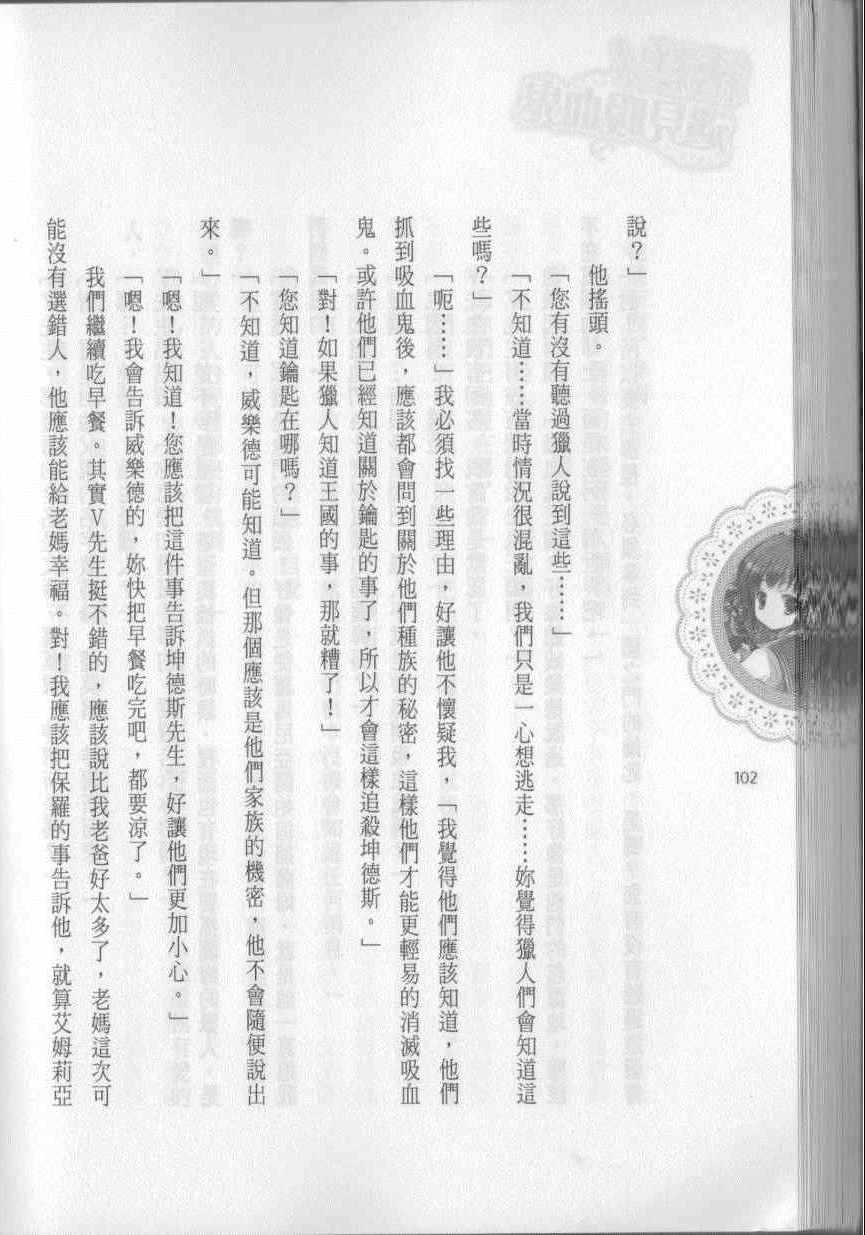 說？」
他搖頭。
「您有沒有聽過獵人說到這些……」
「不知道……當時情況很混亂，我們只是一心想逃走……妳覺得獵人們會知道這
些嗎？」
「呃……」我必須找一些理由，好讓他不懷疑我，「我覺得他們應該知道，他們
抓到吸血鬼後，應該都會問到關於他們種族的秘密，這樣他們才能更輕易的消滅吸血
鬼。或許他們已經知道關於鑰匙的事了，所以才會這樣追殺坤德斯。」
「對！如果獵人知道王國的事，那就糟了！」
「您知道鑰匙在哪嗎？」
「不知道，威樂德可能知道。但那個應該是他們家族的機密，他不會隨便說出
來。」
「嗯！我知道！您應該把這件事告訴坤德斯先生，好讓他們更加小心。」
「嗯！我會告訴威樂德的，妳快把早餐吃完吧，都要涼了。」
我們繼續吃早餐。其實V先生挺不錯的，應該說比我老爸好太多了，老媽這次可
能沒有選錯人，他應該能給老媽幸福。對！我應該把保羅的事告訴他，就算艾姆莉亞
102